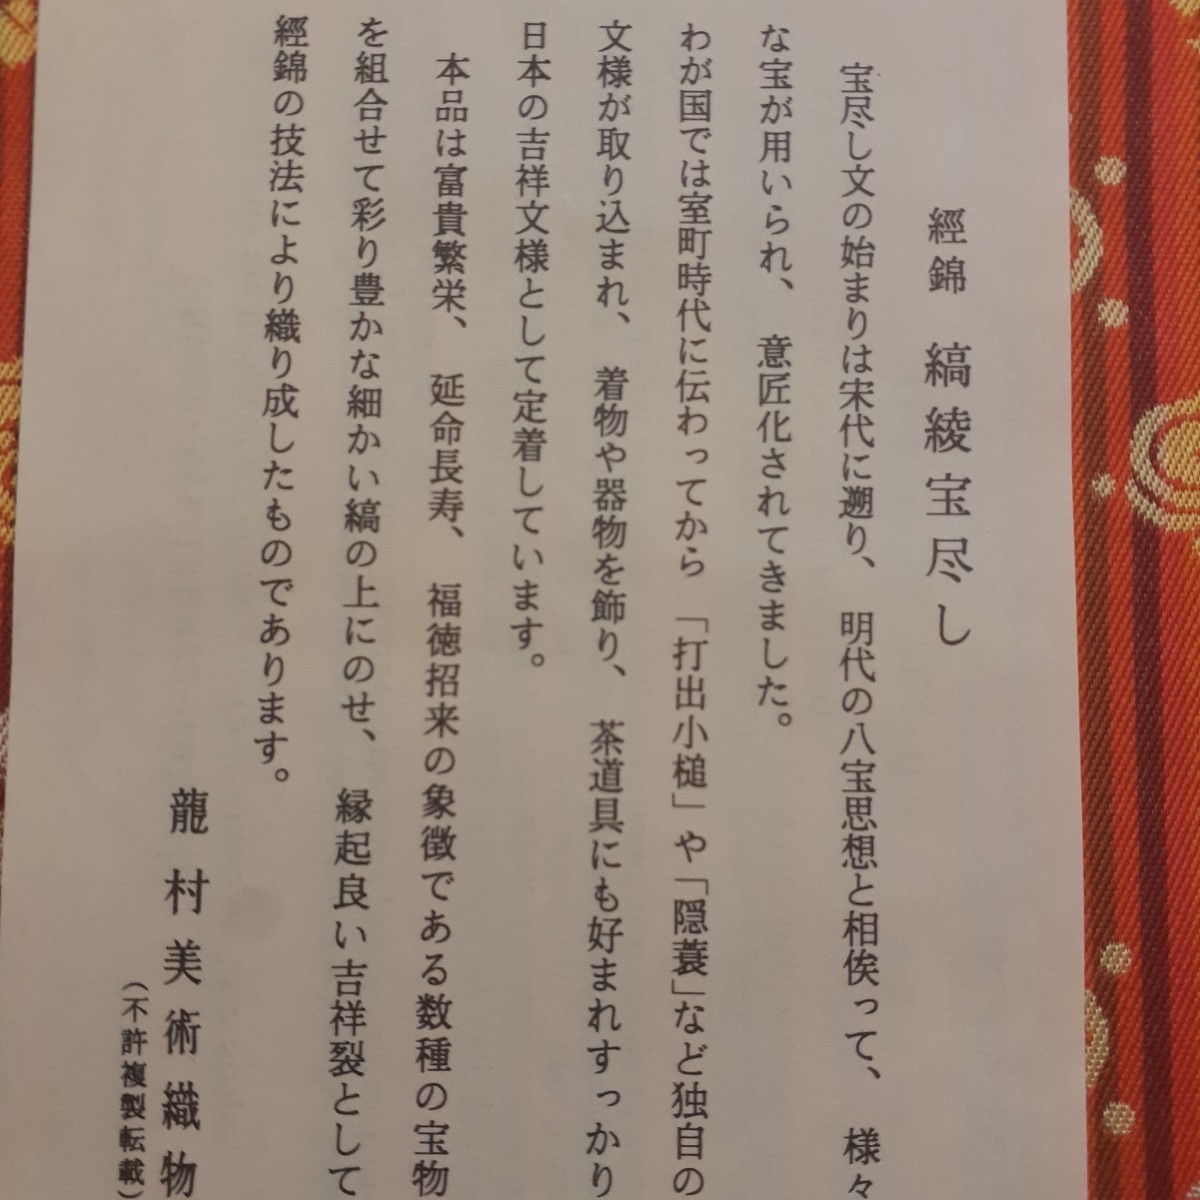 經錦 縞綾宝尽し
宝尽し文の始まりは宋代に遡り、明代の八宝思想と相俟って、様々
な宝が用いられ、意匠化されてきました。
わが国では室町時代に伝わってから「打出小槌」や「隠蓑」など独自の
文様が取り込まれ、着物や器物を飾り、茶道具にも好まれすっかり
日本の吉祥文様として定着しています。
本品は富貴繁栄、延命長寿、福徳招来の象徴である数種の宝物
を組合せて彩り豊かな細かい縞の上にのせ、縁起良い吉祥裂として
經錦の技法により織り成したものであります。
龍村美術織物
（不許複製転載）